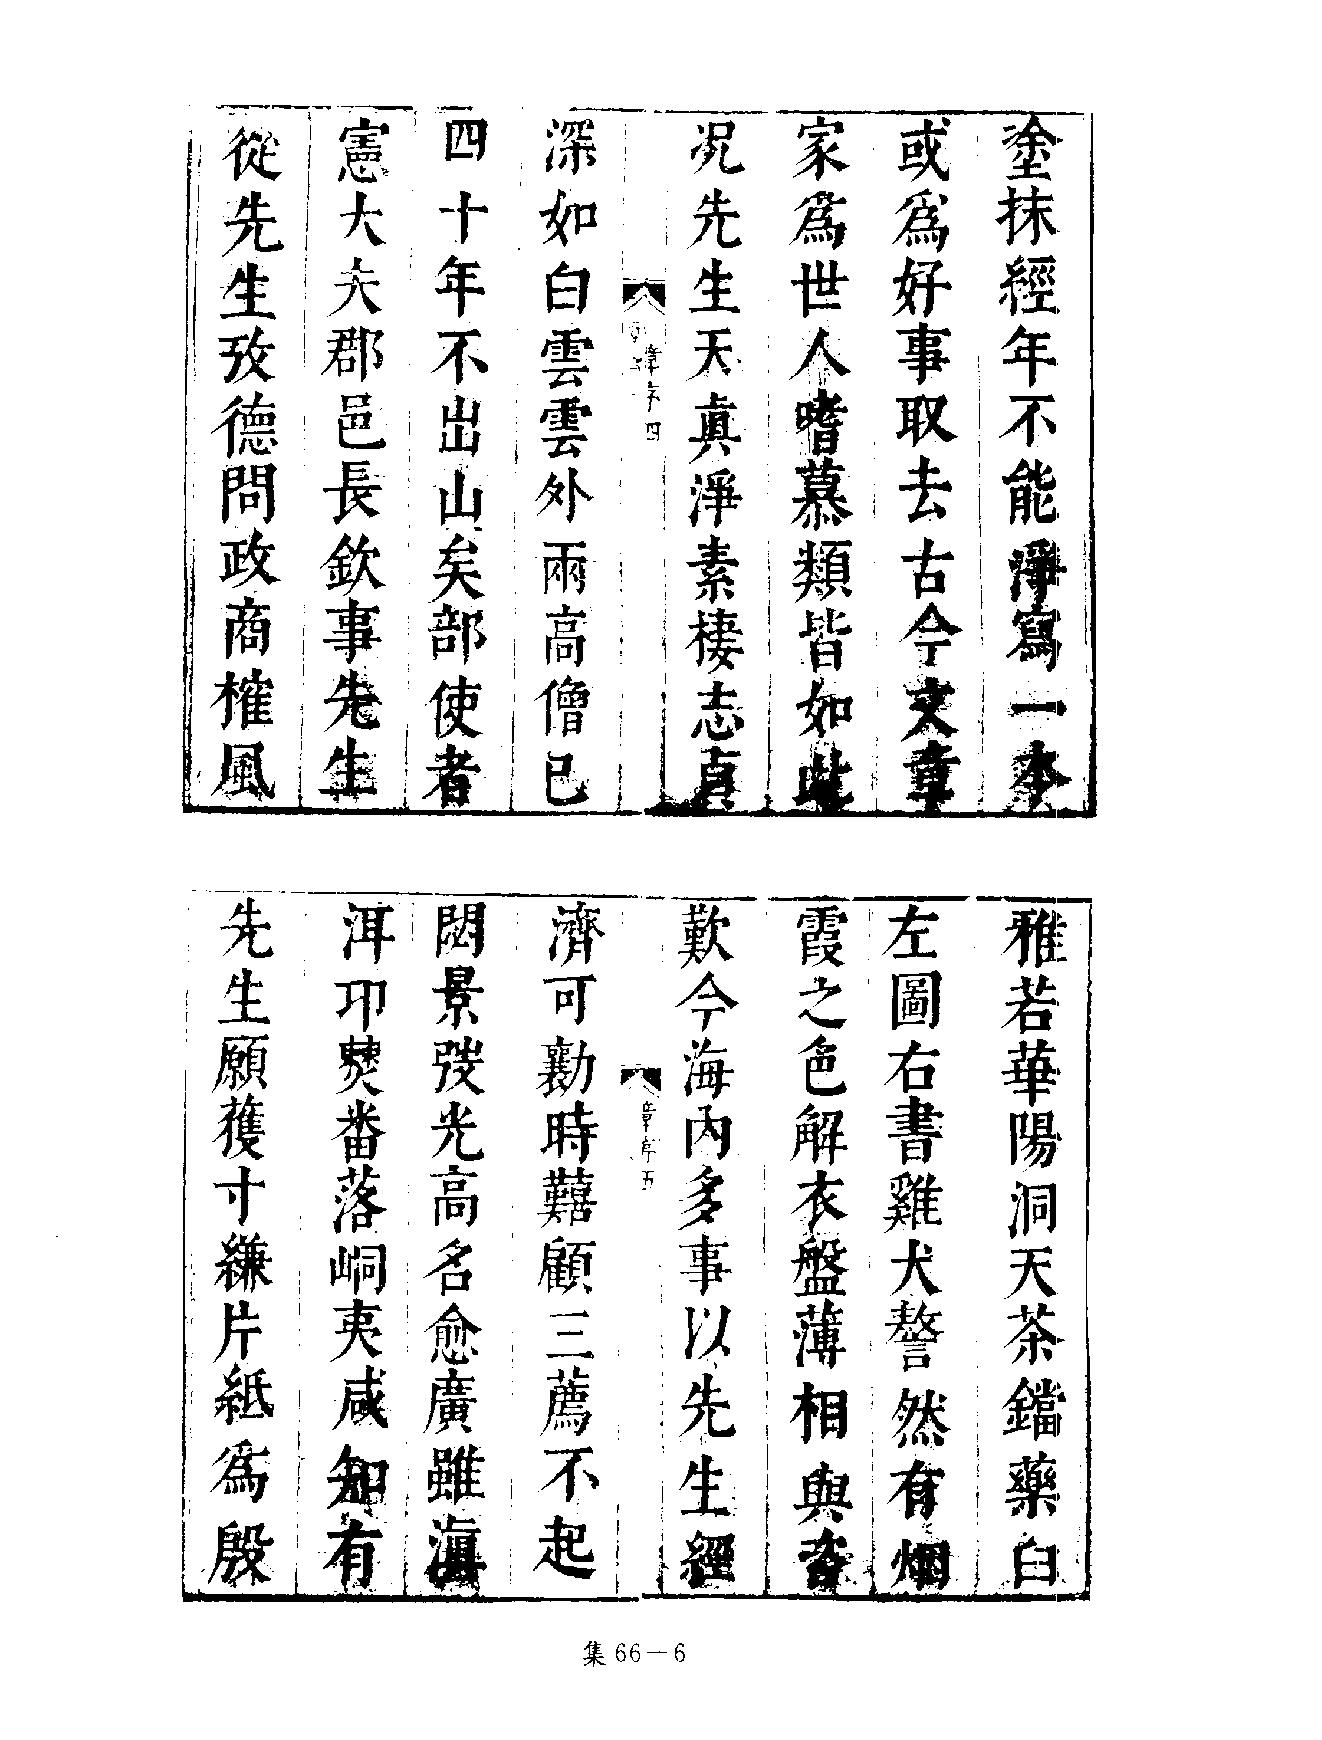 塗抹經年不能淨寫一本
或爲好事取去古今文章
家爲世人嗜慕類皆如此
況先生天真淨素棲志貞
章序四
深如白雲雲外兩高僧已
四十年不出山矣部使者
憲大夫郡邑長欽事先生
從先生攷德問政商榷風
雅若華陽洞天茶鐺藥臼
左圖右書雞犬謷然有烟
霞之色解衣盤薄相與咨
歎今海內多事以先生經
章序五
濟可勷時囏顧三薦不起
閟景弢光高名愈廣雖滇
洱卭僰畨落峒夷咸知有
先生願獲寸縑片紙爲殷
集66－6